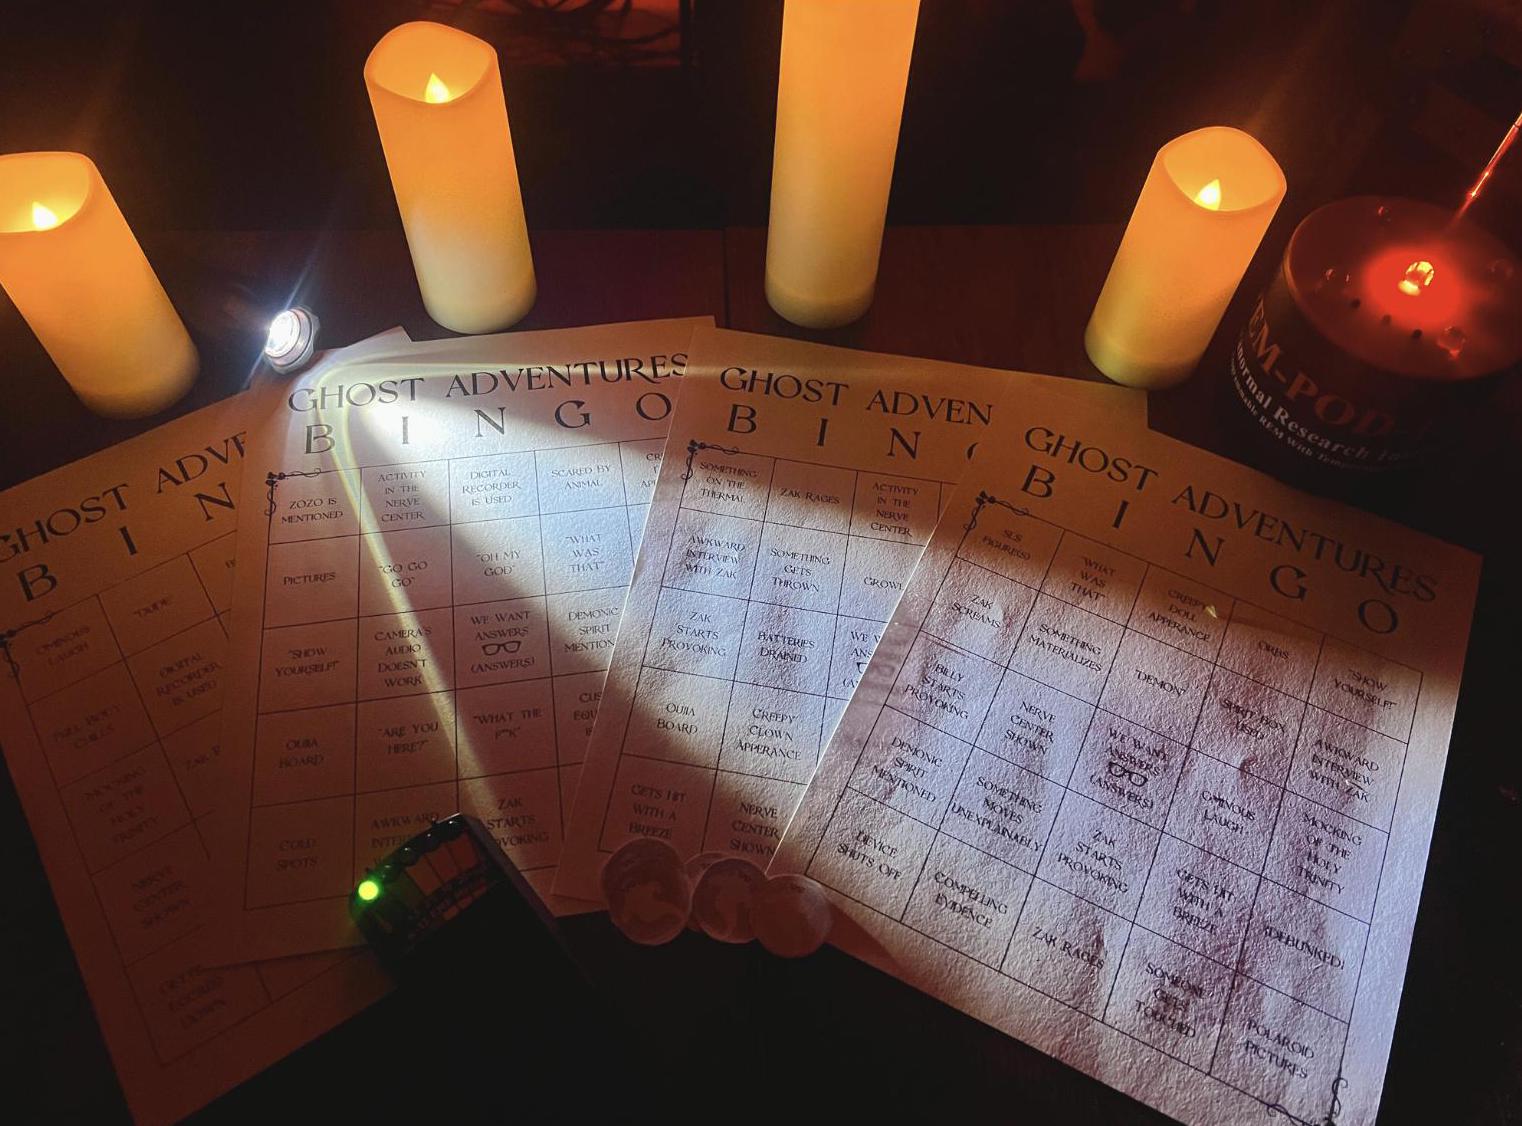 GHOST ADVE
B I N
OMINOUS
LAUGH
"DUDE"
FULL BODY
CHILLS
DIGITAL
RECORDER
IS USED
MOCKING
OF THE
HOLY
TRINITY
ZAK R
NERVE
CENTER
SHOWN
DOWN
GHOST ADVENTURES
B I N G O
ZOZO IS
MENTIONED
ACTIVITY
IN THE
NERVE
CENTER
DIGITAL
RECORDER
IS USED
SCARED BY
ANIMAL
CR
D
AP
PICTURES
"GO GO
GO"
"OH MY
GOD"
"WHAT
WAS
THAT"
"SHOW
YOURSELF!"
CAMERA'S
AUDIO
DOESN'T
WORK
WE WANT
ANSWERS
(ANSWERS)
DEMONIC
SPIRIT
MENTION
OUIJA
BOARD
"ARE YOU
HERE?"
"WHAT THE
F**K"
CUS
EQU
COLD
SPOTS
AWKWARD
INTE
ZAK
STARTS
VOKING
GHOST ADVEN
B I N
SOMETHING
ON THE
THERMAL
ZAK RAGES
ACTIVITY
IN THE
NERVE
CENTER
AWKWARD
INTERVIEW
WITH ZAK
SOMETHING
GETS
THROWN
GROWL
ZAK
STARTS
PROVOKING
BATTERIES
DRAINED
WE W
ANS
(A
OUIJA
BOARD
CREEPY
CLOWN
APPERANCE
GETS HIT
WITH A
BREEZE
NERVE
CENTER
SHOWN
GHOST ADVENTURES
B I N G O
SLS
FIGURE(S)
"WHAT
WAS
THAT"
CREEPY
DOLL
APPERANCE
ORBS
"SHOW
YOURSELF!"
ZAK
SCREAMS
SOMETHING
MATERIALIZES
"DEMON"
SPIRIT BOX
USED
AWKWARD
INTERVIEW
WITH ZAK
BILLY
STARTS
PROVOKING
NERVE
CENTER
SHOWN
WE WANT
ANSWERS
(ANSWERS)
OMINOUS
LAUGH
MOCKING
OF THE
HOLY
TRINITY
DEMONIC
SPIRIT
MENTIONED
SOMETHING
MOVES
UNEXPLAINABLY
ZAK
STARTS
PROVOKING
GETS HIT
WITH A
BREEZE
(DEBUNKED)
DEVICE
SHUTS OFF
COMPELLING
EVIDENCE
ZAK RAGES
SOMEONE
GETS
TOUCHED
POLAROID
PICTURES
EM-POD
ormal Research
REM With Temp